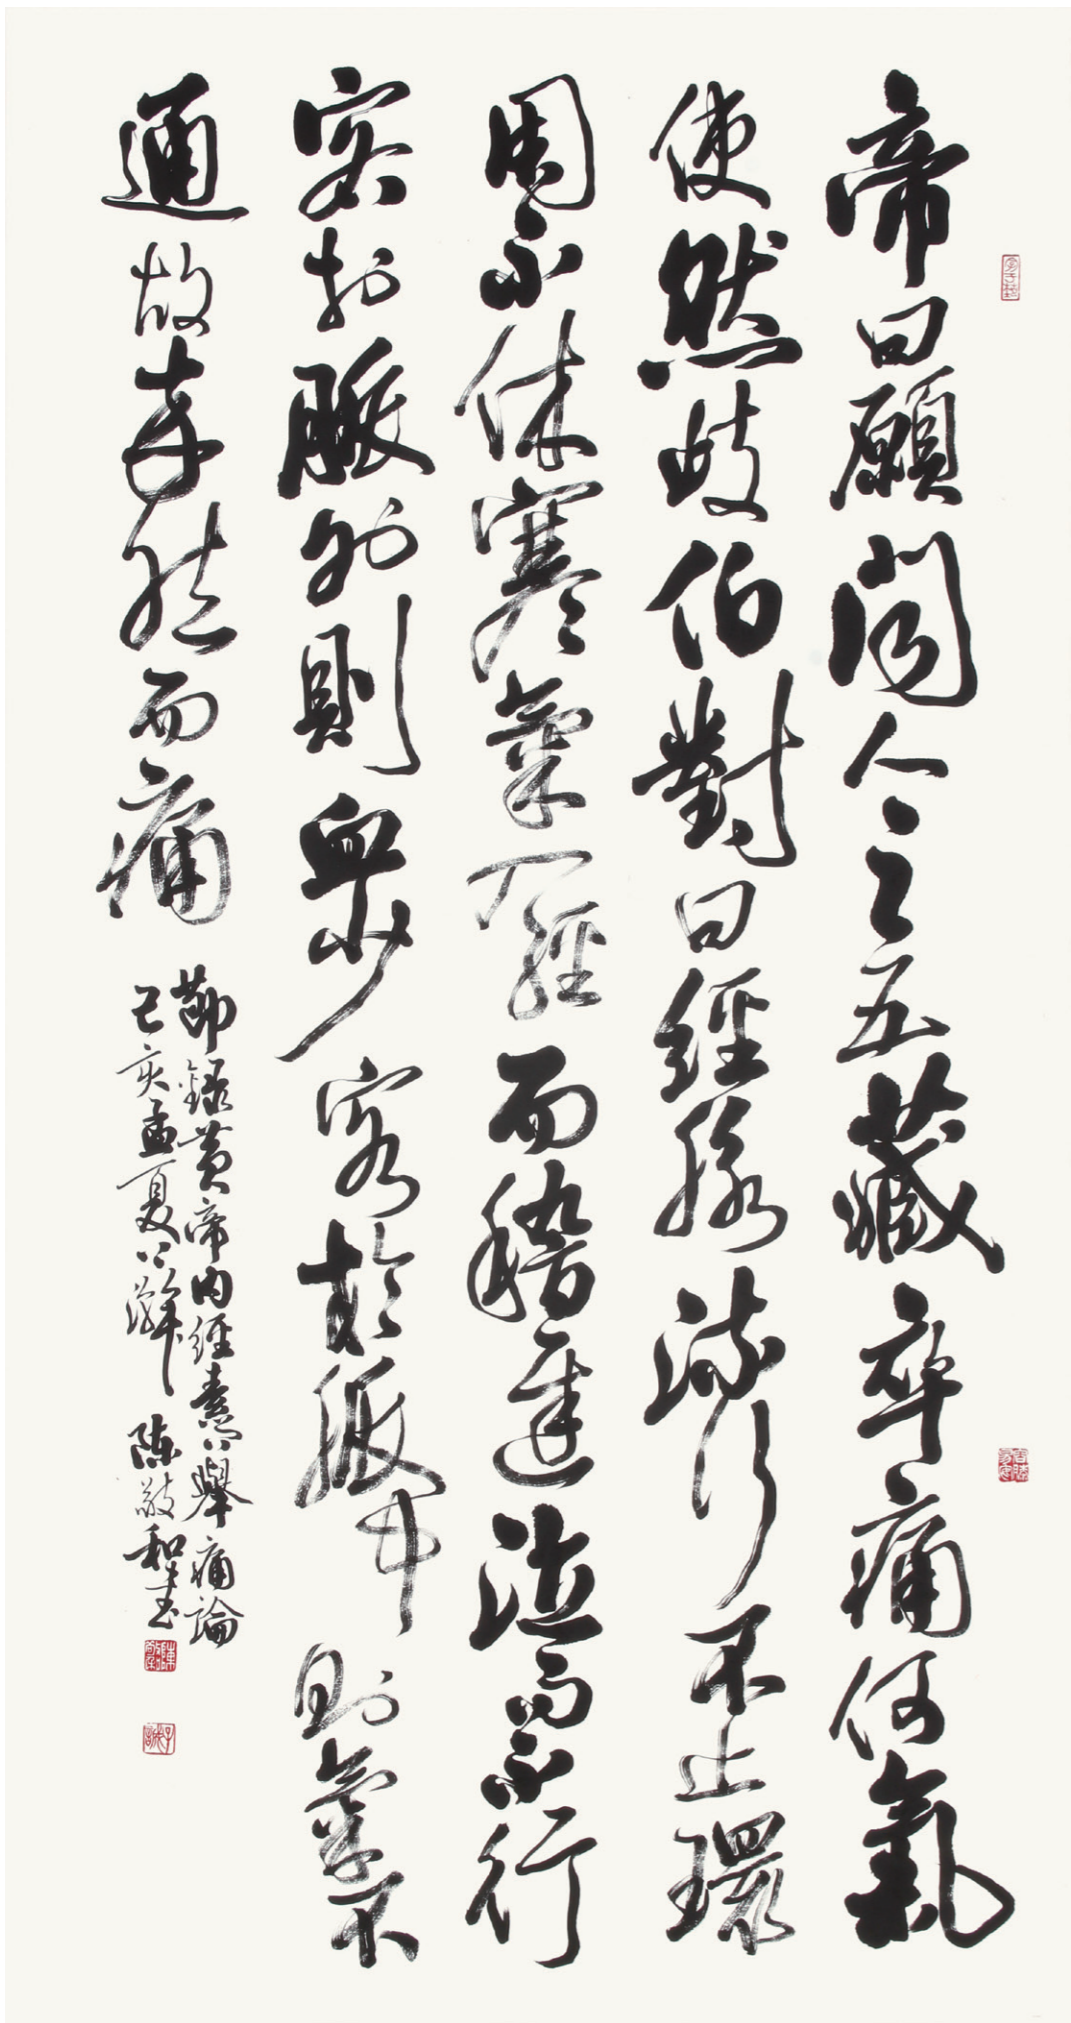 帝曰願聞人之五藏卒痛何氣
使然歧伯對曰經脉流行不止環
周不休寒氣入經而稽遲泣而不行
客於脈外則血少客於脈中則氣不
通故卒然而痛
節錄黃帝內經素問舉痛論
己亥孟夏上澣 陳敬和書